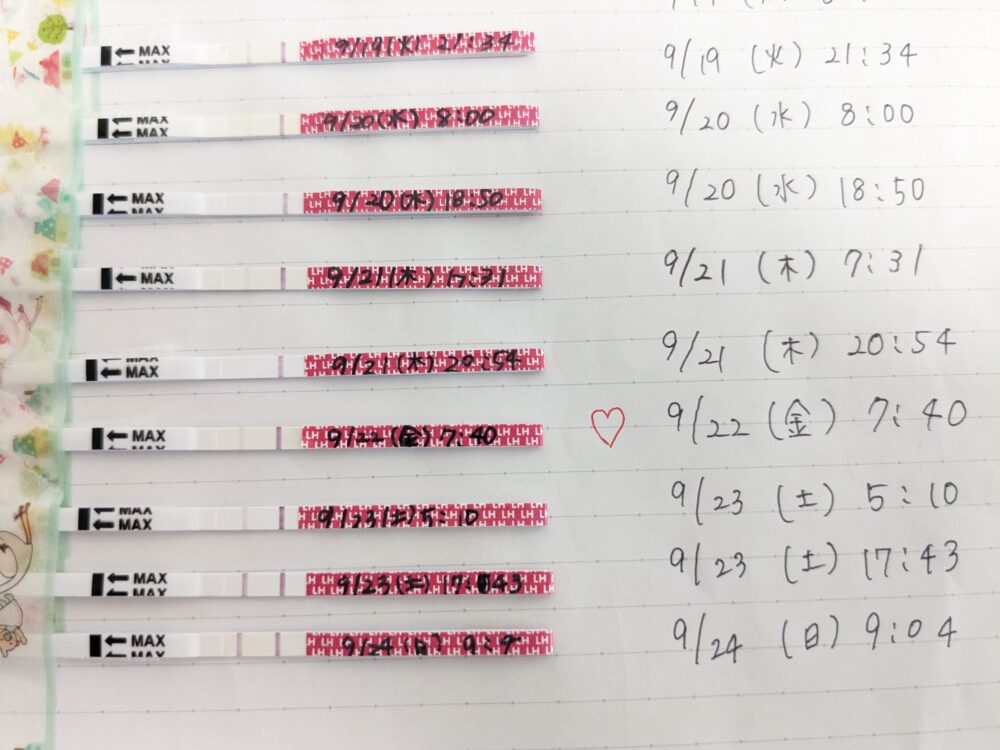 MAX 9/19(火) 21:34 9/19 (火) 21:34
MAX MAX 9/20(水) 8:00 LH 9/20 (水) 8:00
MAX 9/20(水) 18:50 LH 9/20 (水) 18:50
MAX 9/21(木) 7:31 LH 9/21 (木) 7:31
MAX MAX 9/21(木) 20:54 LH 9/21 (木) 20:54
MAX 9/22(金) 7:40 LH 9/22 (金) 7:40
MAX MAX 9/23(土) 5:10 LH 9/23 (土) 5:10
MAX 9/23(土) 17:43 LH 9/23 (土) 17:43
MAX 9/24(日) 9:4 LH 9/24 (日) 9:04